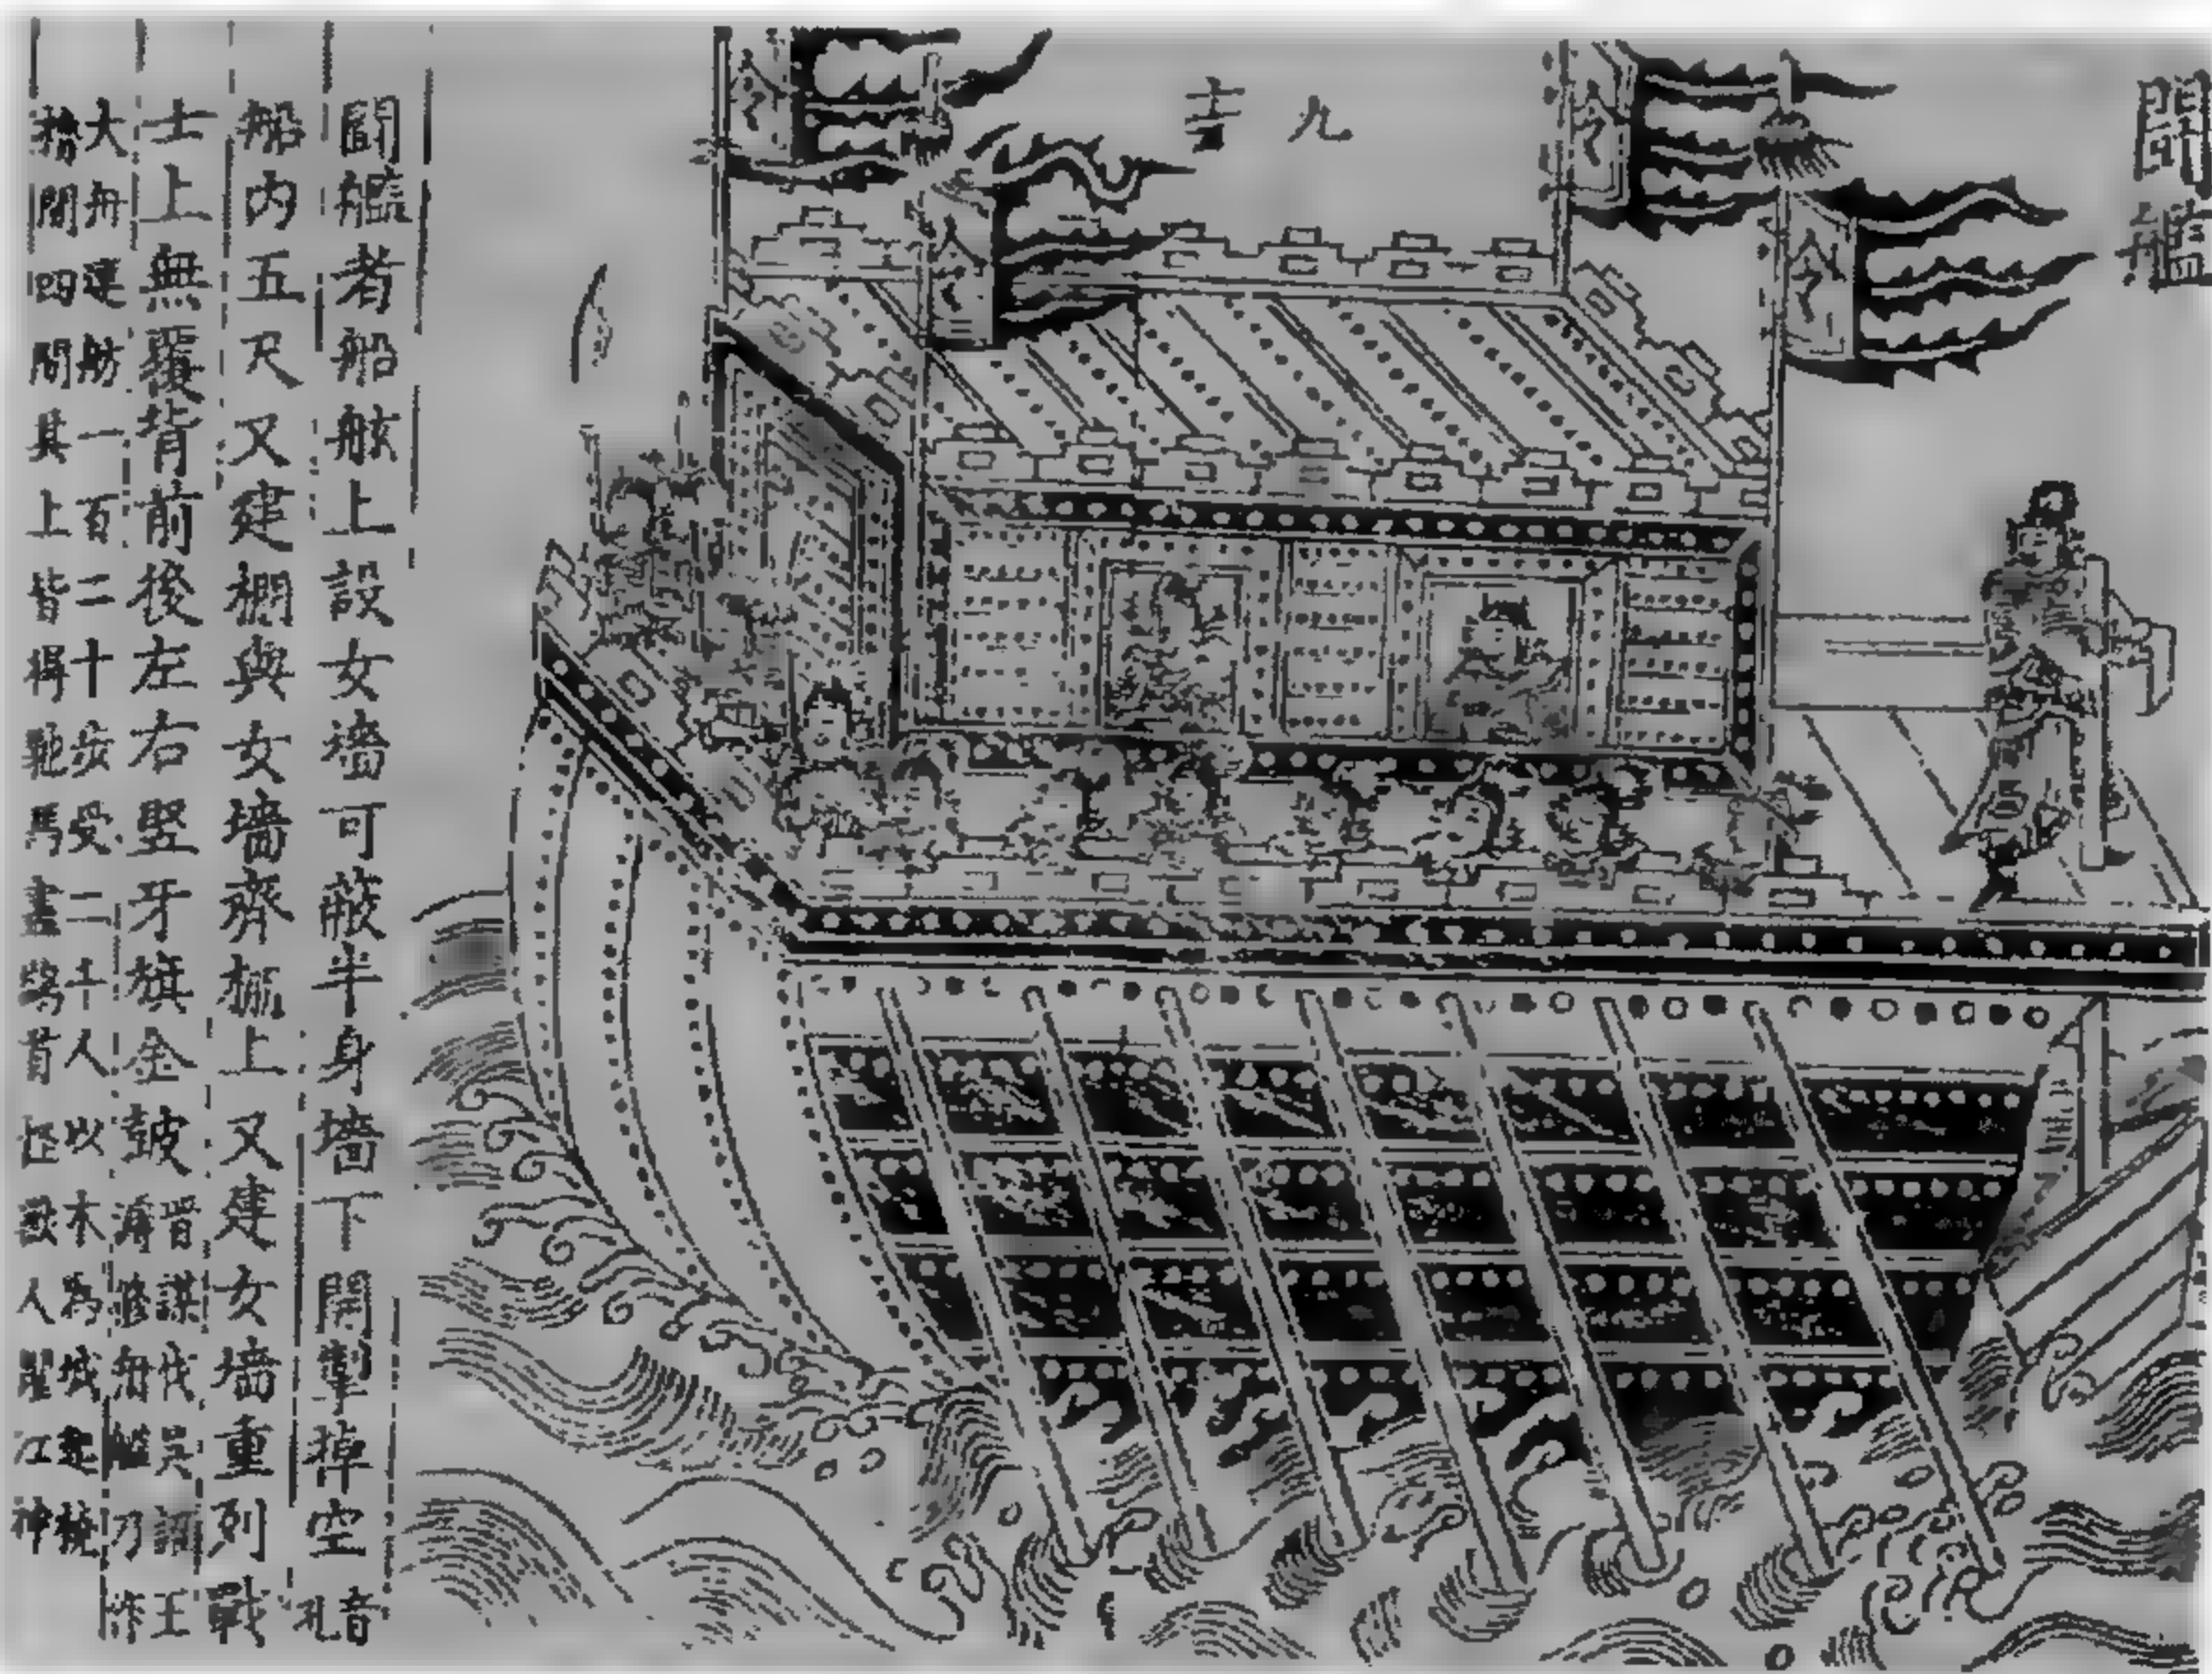 闘艦
令
令
令
令
九
闘艦者船舷上設女墻可蔽半身墻下開掣棹空音孔
船內五尺又建棚與女墻齊棚上又建女墻重列戰
士上無覆背前後左右竪牙旗金鼓晉謀伐吳詔王
濬修舟艦乃作
大舟連舫一百二十步受二千人以木為城起
開四門其上皆得馳馬畫鷁首怪獸人懼江神